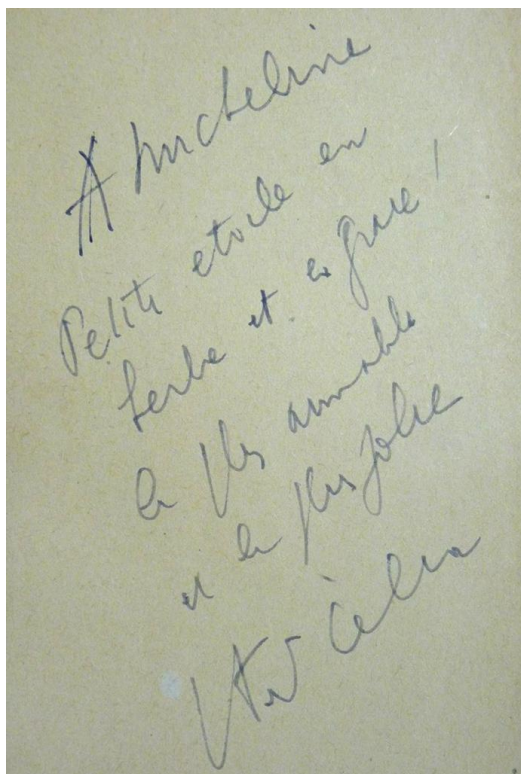 A Micheline
Petite étoile en
herbe et en grâce !
la plus aimable
et la plus jolie